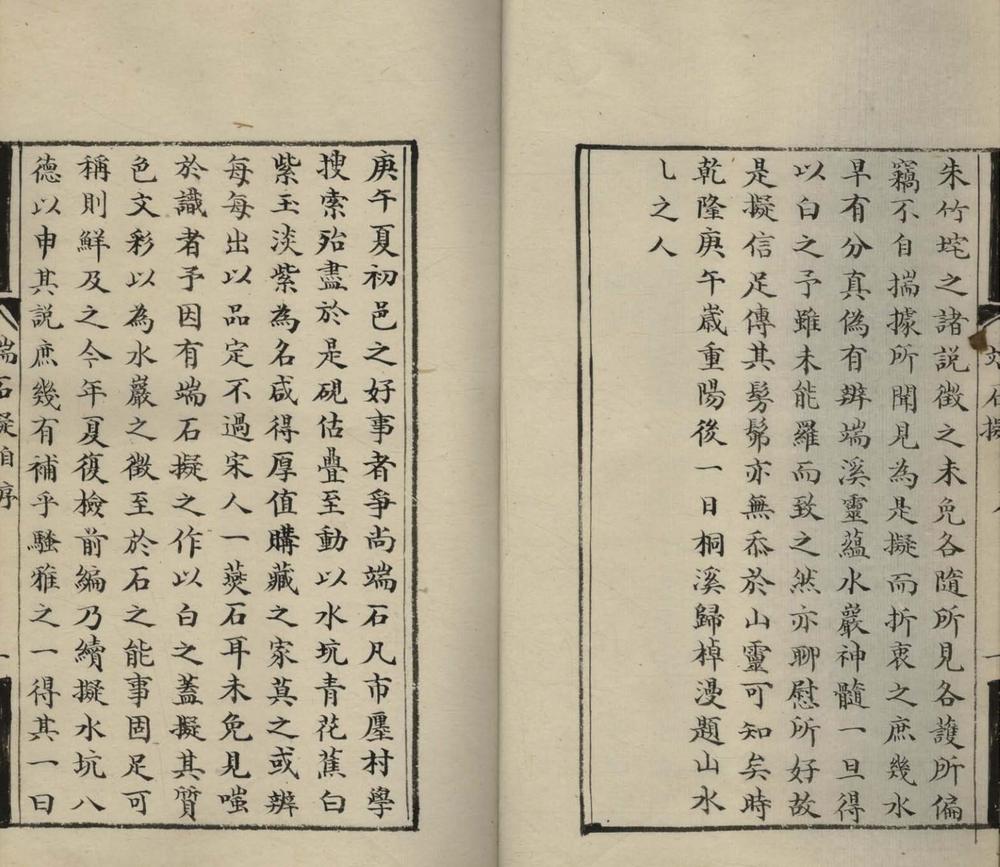 朱竹垞之諸説徵之未免各隨所見各護所偏
竊不自揣據所聞見為是擬而折衷之庶幾水
早有分真偽有辨端溪靈蘊水巖神髓一旦得
以白之予雖未能羅而致之然亦聊慰所好故
是擬信足傳其髣髴亦無忝於山靈可知矣時
乾隆庚午歲重陽後一日桐溪歸棹漫題山水
乚之人
庚午夏初邑之好事者爭尚端石凡市廛村學
搜索殆盡於是硯估疊至動以水坑青花蕉白
紫玉淡紫為名咸得厚值購藏之家莫之或辨
每每出以品定不過宋人一燕石耳未免見嗤
於識者予因有端石擬之作以白之蓋擬其質
色文彩以為水巖之徵至於石之能事固足可
稱則鮮及之今年夏復檢前編乃續擬水坑八
德以申其説庶幾有補乎騷雅之一得其一曰
端石擬自序
一